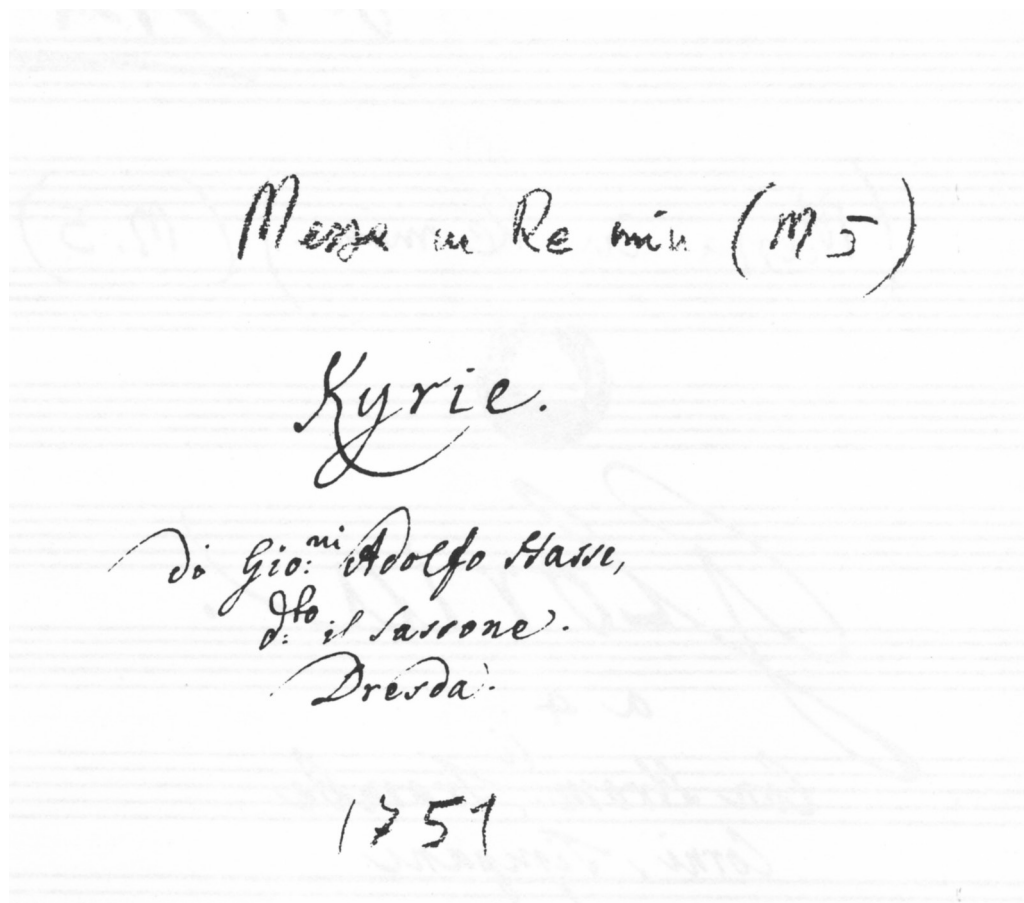 Messa in Re min (M 5)
Kyrie.
di Gio:ni Adolfo Hasse,
d:to il Sassone.
Dresda.
1751